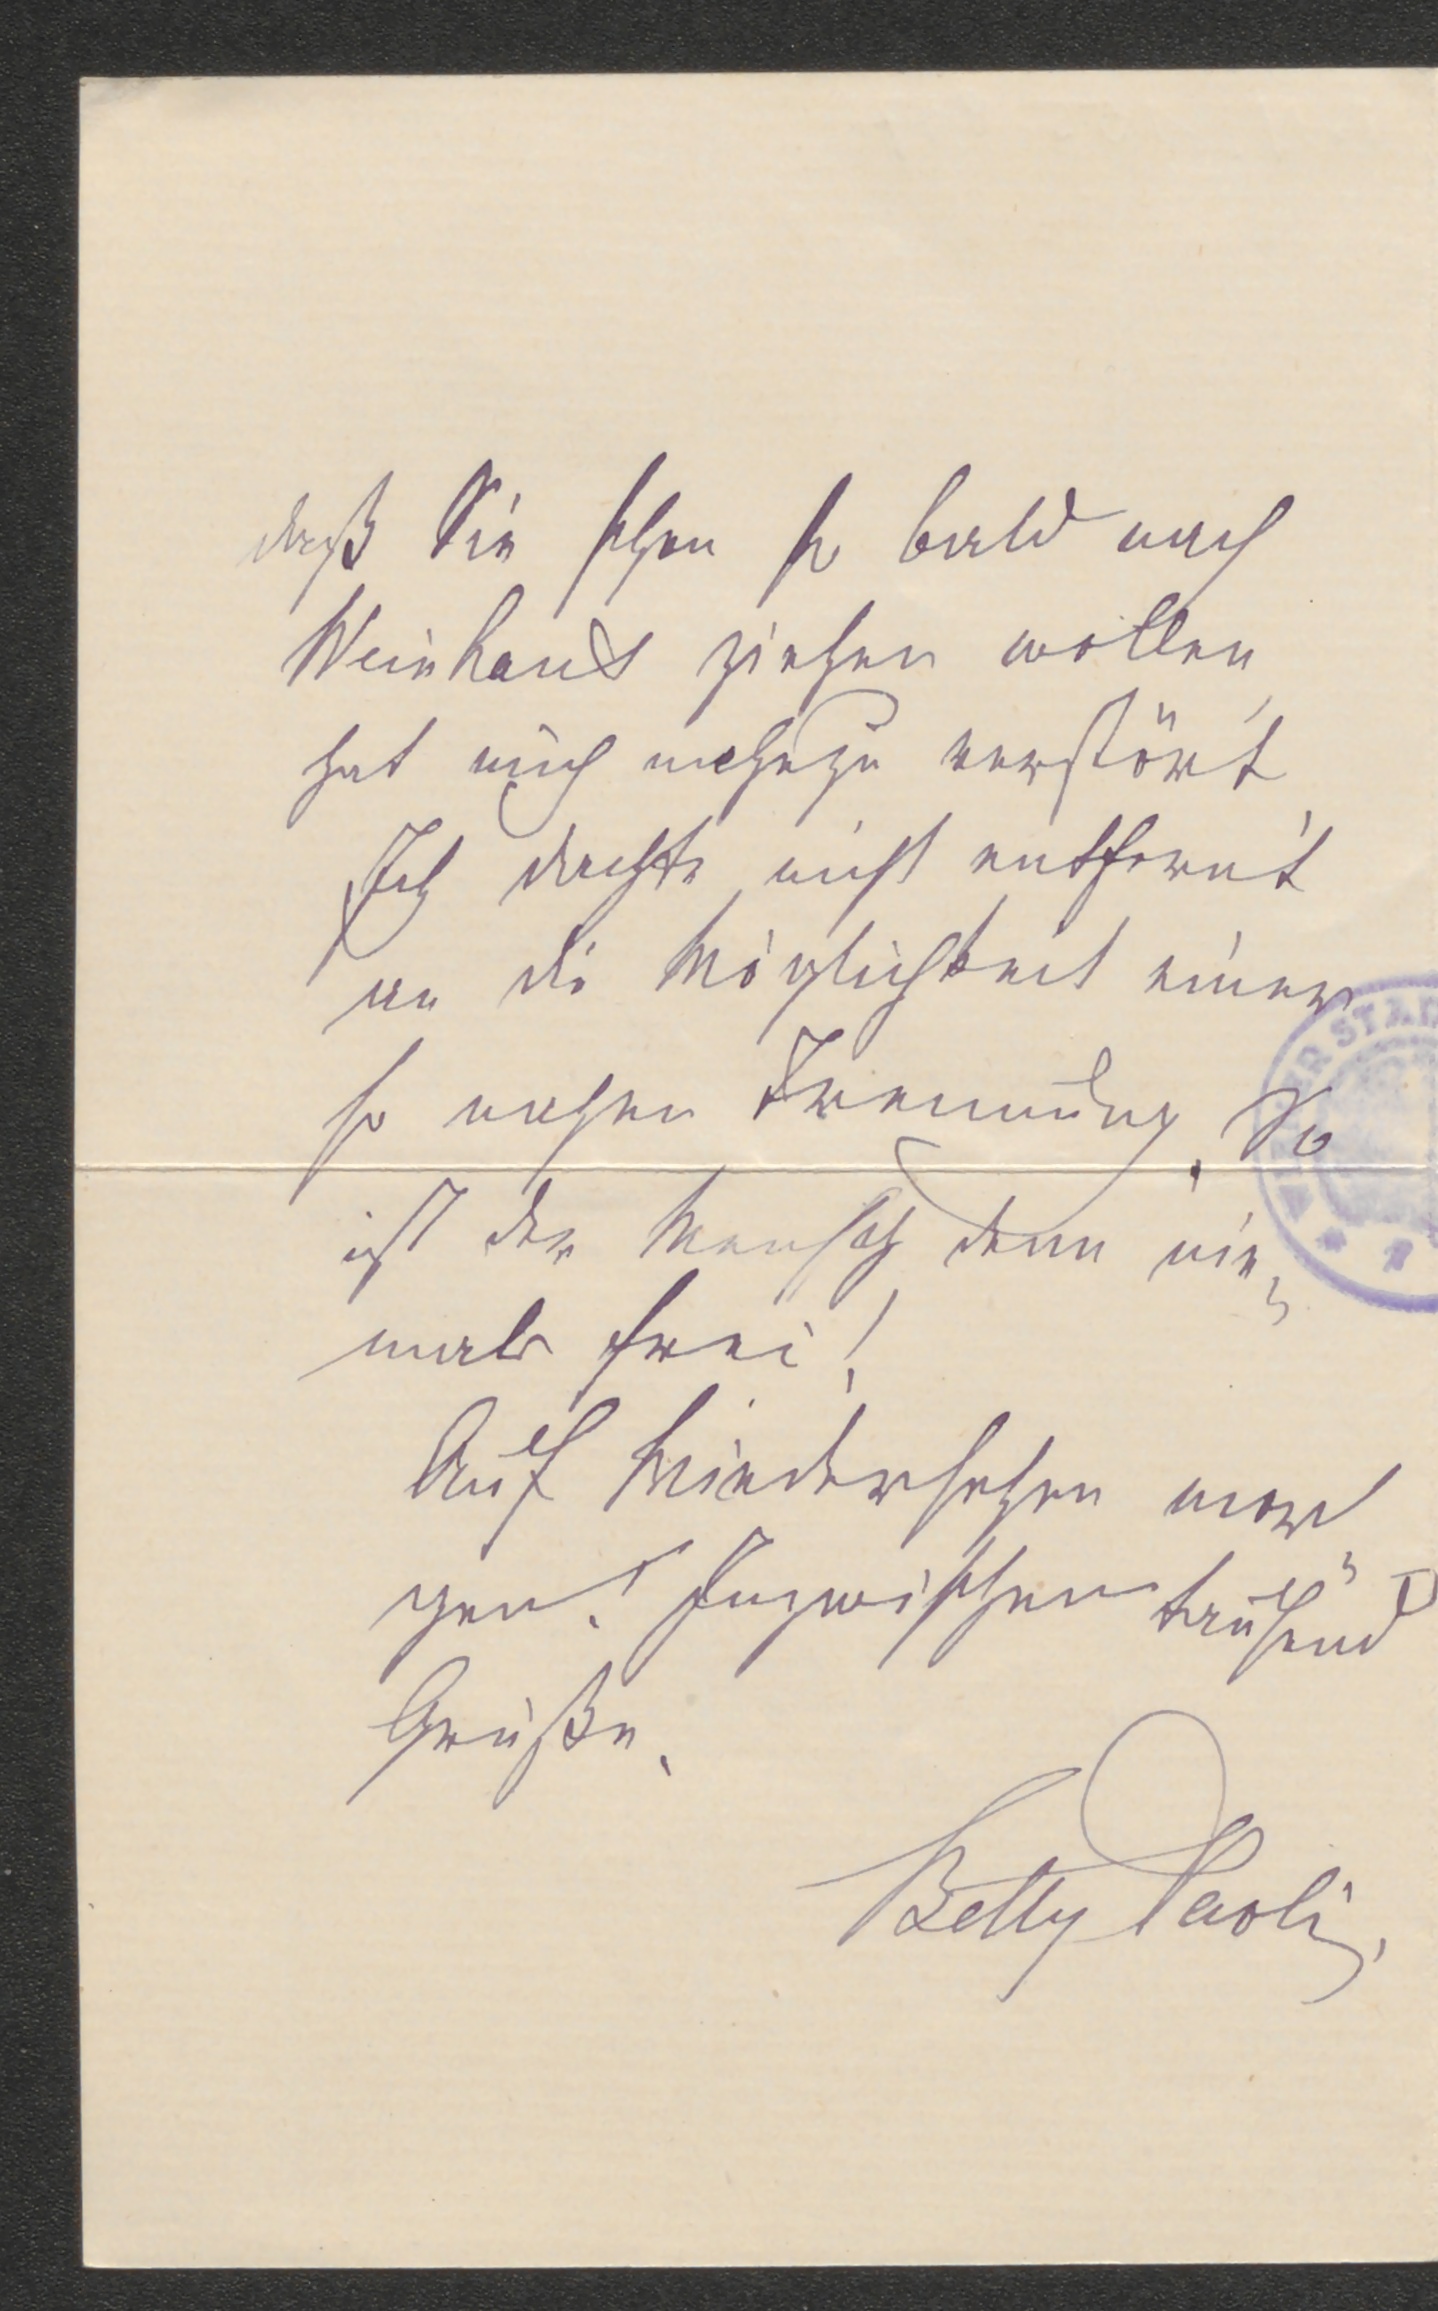 daß Sie schon so bald nach
Weinhaus ziehen wollen,
hat mich nahezu verstört.
Ich dachte nicht entfernt
an die Möglichkeit einer
so nahen Trennung. So
ist der Mensch denn nie-
mals frei!
Auf Wiedersehen mor
gen! Inzwischen tausend
Grüße.
Betty Paoli.